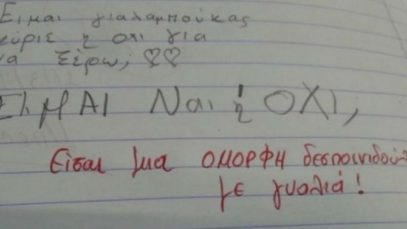 Είμαι γιαλαμπούκας
κύριε ή οχι για
να ξέρω; ♡♡
ΕΙμΑΙ Ναι ή ΟΧΙ,
Είσαι μια ΟΜΟΡΦΗ δεσποινιδού
με γυαλιά!